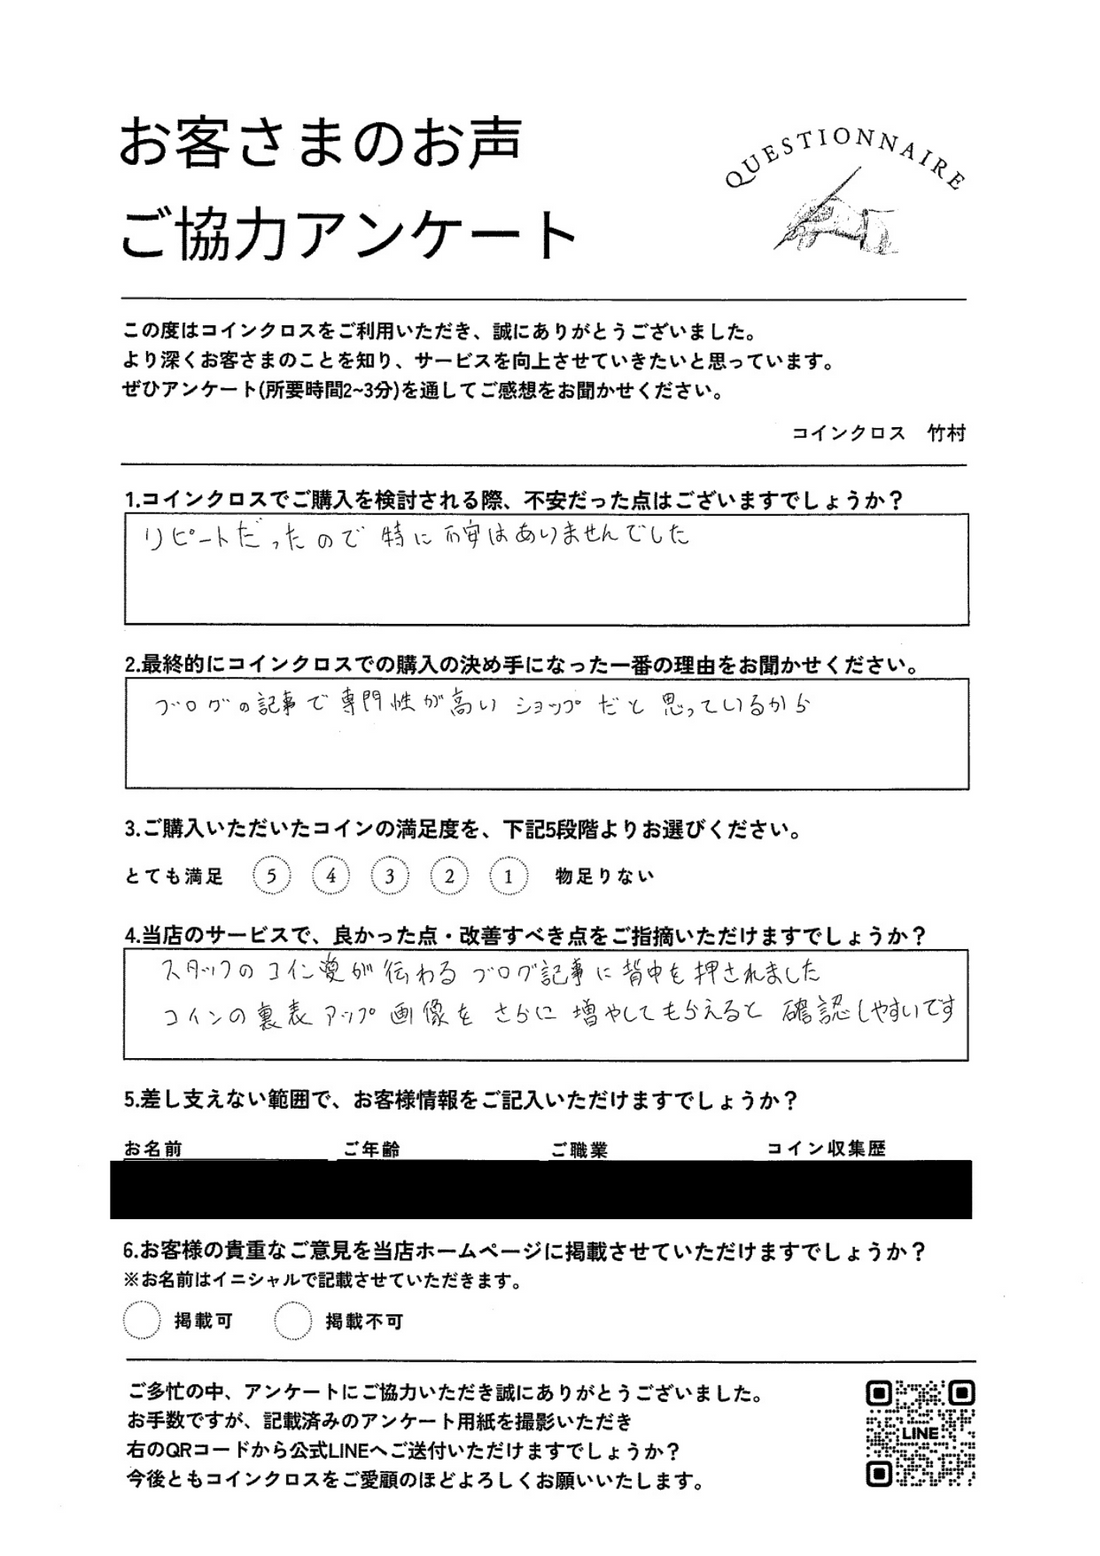 お客さまのお声
ご協力アンケート
QUESTIONNAIRE
この度はコインクロスをご利用いただき、誠にありがとうございました。
より深くお客さまのことを知り、サービスを向上させていきたいと思っています。
ぜひアンケート(所要時間2~3分)を通してご感想をお聞かせください。
コインクロス　竹村
1.コインクロスでご購入を検討される際、不安だった点はございますでしょうか？
リピートだったので特に不安はありませんでした
2.最終的にコインクロスでの購入の決め手になった一番の理由をお聞かせください。
ブログの記事で専門性が高いショップだと思っているから
3.ご購入いただいたコインの満足度を、下記5段階よりお選びください。
とても満足 5 4 3 2 1 物足りない
4.当店のサービスで、良かった点・改善すべき点をご指摘いただけますでしょうか？
スタッフのコイン愛が伝わるブログ記事に背中を押されました
コインの裏表アップ画像をさらに増やしてもらえると確認しやすいです
5.差し支えない範囲で、お客様情報をご記入いただけますでしょうか？
お名前 ご年齢 ご職業 コイン収集歴
6.お客様の貴重なご意見を当店ホームページに掲載させていただけますでしょうか？
※お名前はイニシャルで記載させていただきます。
掲載可 掲載不可
ご多忙の中、アンケートにご協力いただき誠にありがとうございました。
お手数ですが、記載済みのアンケート用紙を撮影いただき
右のQRコードから公式LINEへご送付いただけますでしょうか？
今後ともコインクロスをご愛顧のほどよろしくお願いいたします。
LINE